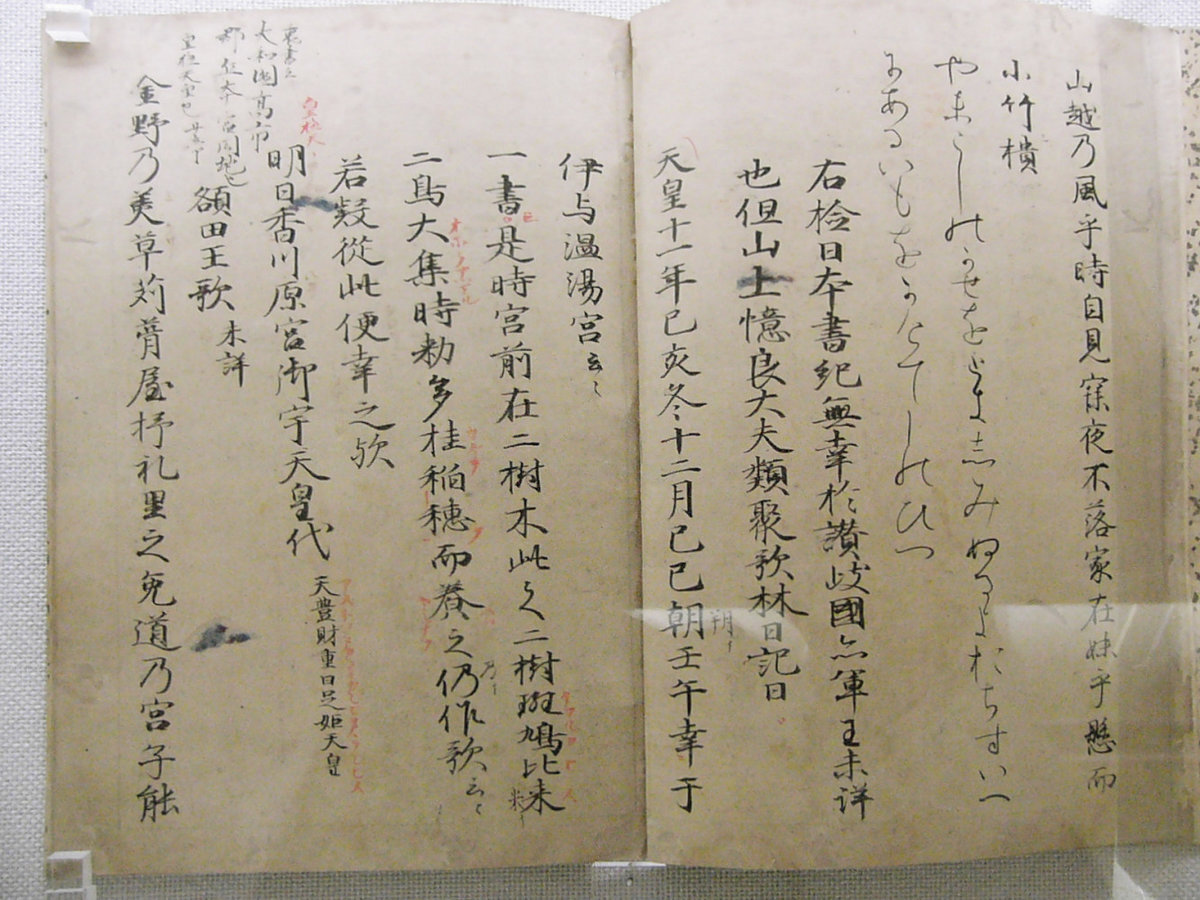 山越乃風乎時自見寐夜不落家在妹乎懸而
小竹樻
やまこしのかせをときしみぬるよおちすいへ
にあるいもをかけてしのひつ
右検日本書紀無幸於讃岐國亦軍王未詳
也但山上憶良大夫類聚歌林曰記曰
天皇十一年己亥冬十二月己巳朝壬午幸于
朔
伊与温湯宮云〻
一書是時宮前在二樹木此之二樹斑鳩比米
二鳥大集時勅多桂稲穂而養之仍作歌云〻
乃
若疑從此便幸之歟
皇極天
明日香川原宮御宇天皇代 天豊財重日足姫天皇
大和國高市
額田王歌 未詳
金野乃美草苅葺屋杼礼里之兔道乃宮子能